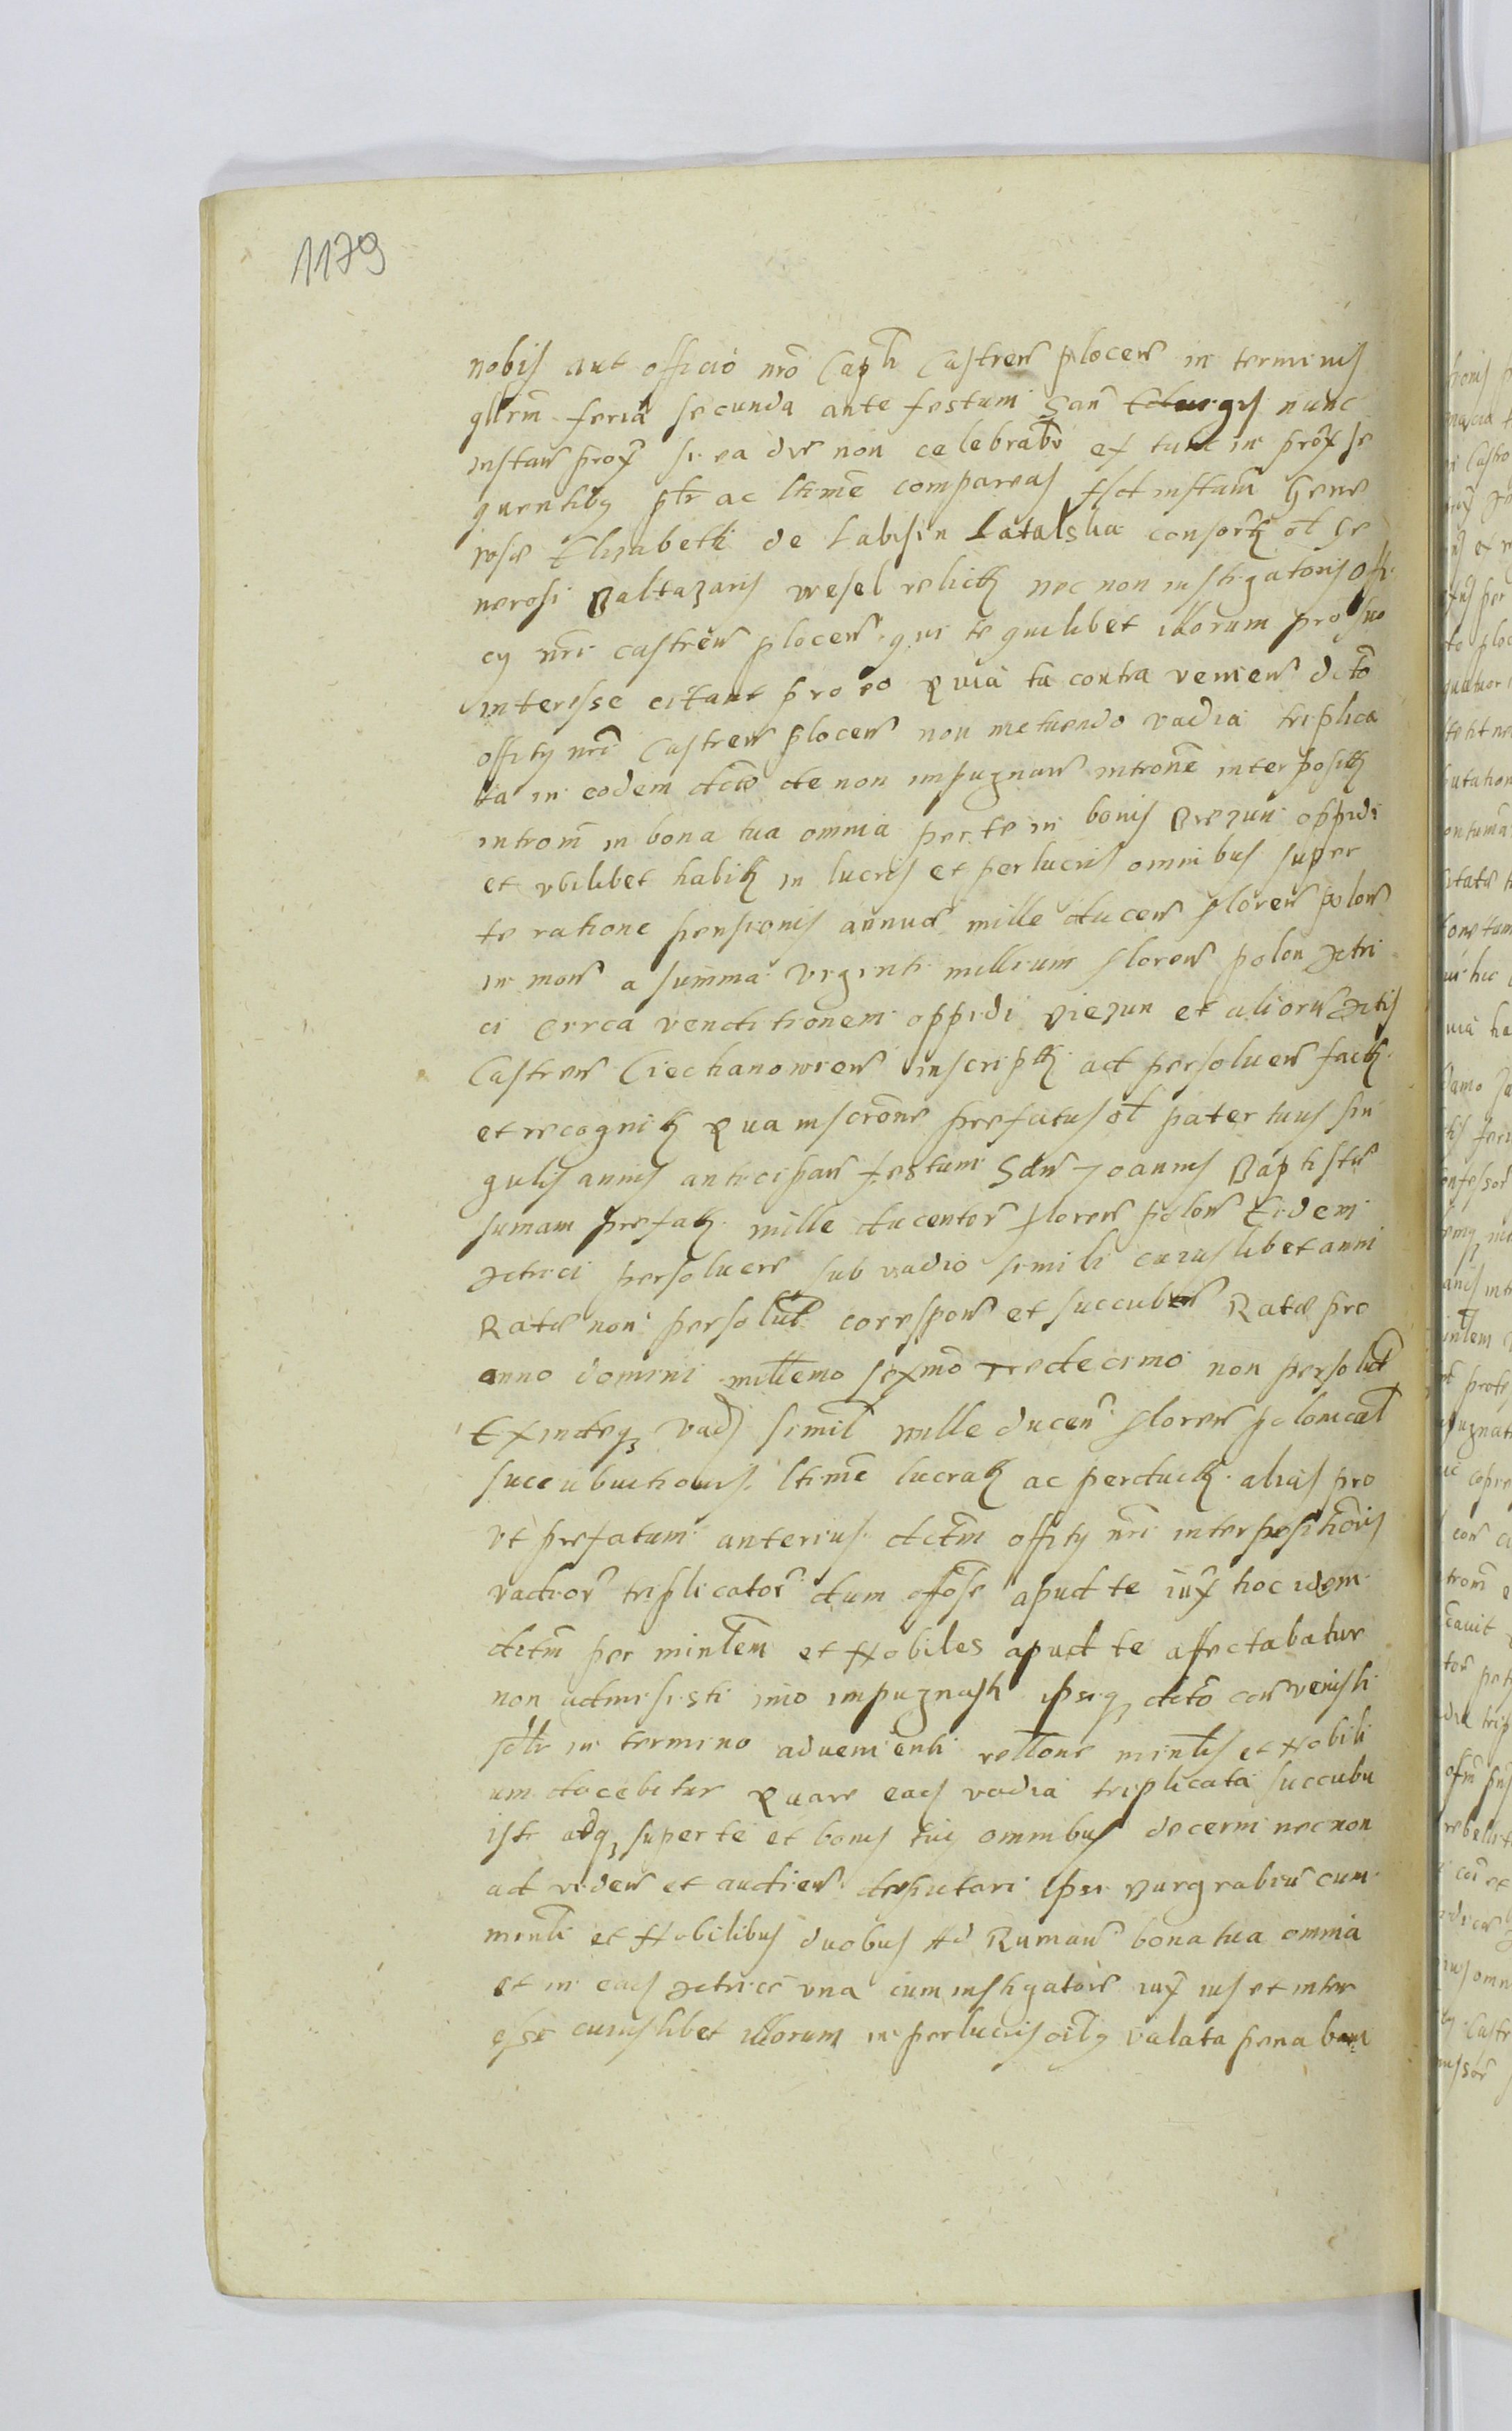 1179
nobis aut officio nrō Capli Castren plocen in terminis
qllrm feria secunda ante festum San nunc
instan prox si ea die non celebrabr ex tunc in prox se
quentibq ptr ac ltime compareas Ad instam Gene
rosæ Elizabeth de Labisin Latalska consortq ol Ge
nerosi Baltazaris wesel relictq nec non instigatoris offi
cy nri castren plocen qui te quilibet illorum pro suo
interesse citant pro eo Quia tu contra venien dcto
offity nri Castren plocen non metuendo vadia triplica
ta in eodem dcto de non impugnan introne interpositq
introm in bona tua omnia per te in bonis Biezun oppidi
et vbilibet habitq in lucris et perlucris omnibus super
te ratione pensionis annuæ mille ducen floren polon
in mon a summa viginti millium floren polon actri
ci circa venditionem oppidi Biezun et aliorn actis
Castren Ciechanowien inscriptq ad persoluen factq
et recognitq Qua inscrone prefatus ol pater tuus sin
gulis annis anticipan festum San Joannis Baptistæ
sumam prefatq mille ducentor floren polon Eidem
actrici persoluere sub vadio simili cuiuslibet anni
Ratæ non persolut correspon et succuben Ratæ pro
anno domini millemo sexmo tredecimo non persolut
Exindeq vady simil mille ducen floren polonical
succubuitionis ltime lucratq ac perductq alias pro
vt prefatum anterius dctm offity nri interpositionis
vadior triplicator dum offose apud te iux hoc idem
dctm per minlem et Nobiles apud te affectabatur
non admisisti imo impugnasti ipsiq dcto conuenisti
sdtr in termino aduenienti rellone minlis et Nobili
um docebitur Quare eads vadia triplicata succubu
isti adq super te et bonis tuis omnibus decerni necnon
ad viden et audien deputari ipsi Burgrabin cum
minli et Nobilibus duobus Ad Ruman bona tua omnia
et in eads actrice vna cum instigatore iux ius et inter
esse cuiuslibet illorum in perlucris oibq valata pena bani